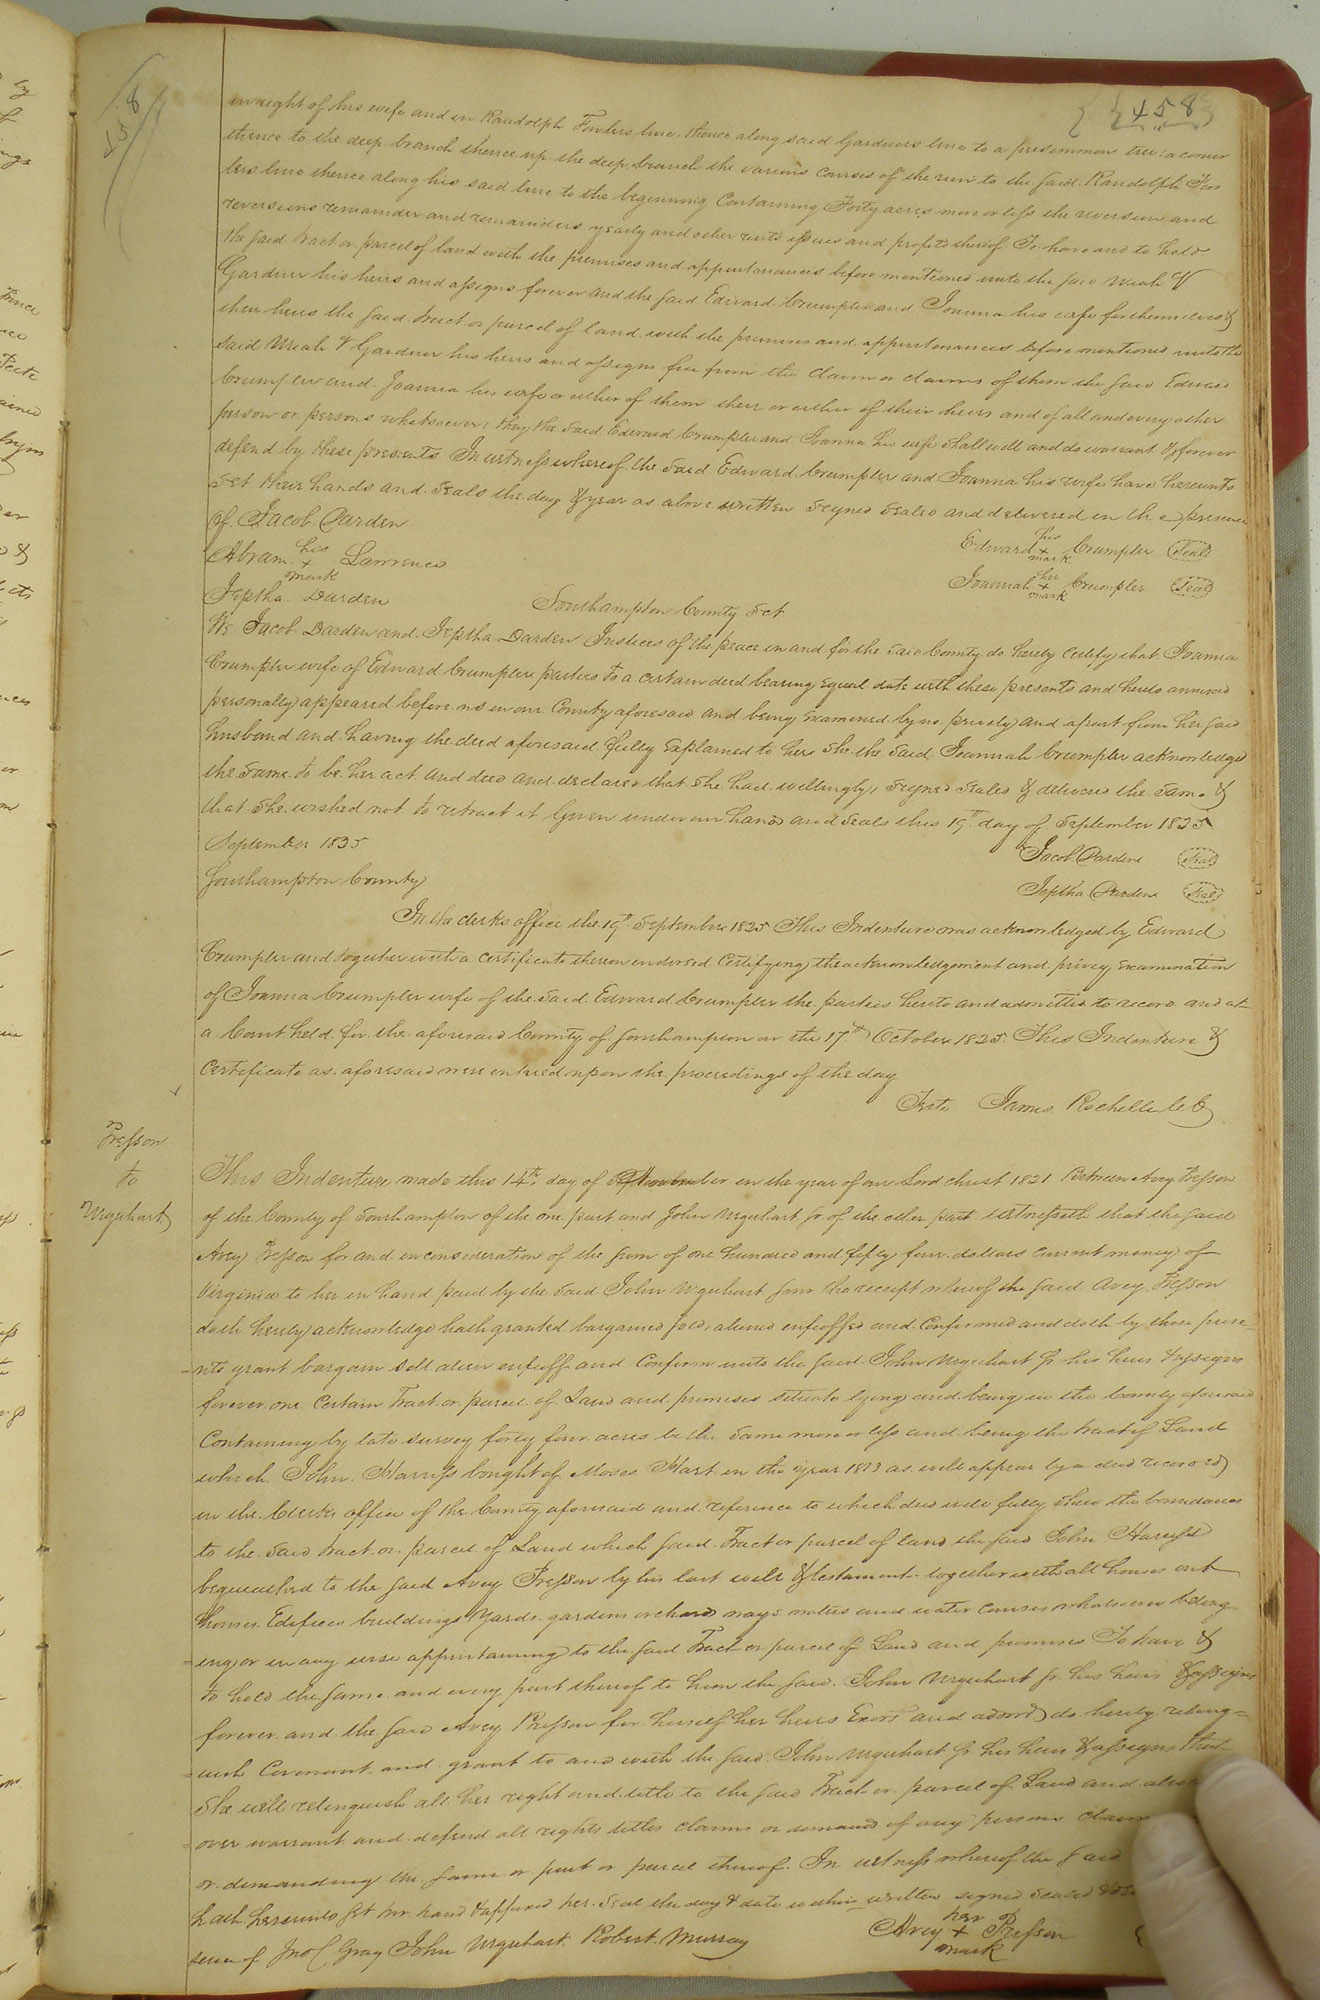 458
458
in right of his wife and in Randolph Fowlers line. thence along said Gardners line to a persemmon tree: a corner
thence to the deep branch thence up the deep branch the various courses of the run to the said Randolph Fow
lers line thence along his said line to the beginning Containing Forty acres more or less the reversion and
reversions remainder and remainders yearly and other rents issues and profits thereof To have and to hold
the said tract or parcel of land with the premises and appurtenances before mentioned unto the said
Gardner his heirs and assigns forever and the said Edward Crumpler and Joanna his wife for themselves &
their heirs the said tract or parcel of land with the premises and appurtenances before mentioned unto the
said Gardner his heirs and assigns free from the claim or claims of them the said Edward
Crumpler and Joanna his wife or either of them their or either of their heirs and of all and every other
person or persons whatsoever: they the said Edward Crumpler and Joanna his wife shall will and do warrant & forever
defend by these presents. In witness whereof the said Edward Crumpler and Joanna his wife have hereunto
set their hands and seals the day & year as above written signed sealed and delivered in the presence
of Jacob Darden
Edward his + mark Crumpler Seal
Abram his + mark Lawrence
Joannah her + mark Crumpler Seal
Jeptha Darden
Southampton County Sct
We Jacob Darden and Jeptha Darden Justices of the peace in and for the said County do hereby certify that Joanna
Crumpler wife of Edward Crumpler parties to a certain deed bearing equal date with these presents and hereto annexed
personally appeared before us in our County aforesaid and being examined by us privily and apart from her said
husband and having the deed aforesaid fully explained to her she the said Joannah Crumpler acknowledged
the same to be her act and deed and declared that she had willingly signed sealed & delivered the same &
that she wished not to retract it Given under our hands and seals this 19th day of September 1825
September 1835
Jacob Darden Seal
Southampton County
Jeptha Darden Seal
In the clerks office the 19th September 1825 This Indenture was acknowledged by Edward
Crumpler and together with a certificate thereon endorsed certifying the acknowledgement and privy examination
of Joanna Crumpler wife of the said Edward Crumpler the parties hereto and admitted to record and at
a Court held for the aforesaid County of Southampton on the 17th October 1825. This Indenture &
Certificate as aforesaid were entered upon the proceedings of the day
Teste James Rochelle
Presson
to
Urquhart
This Indenture made this 14th day of in the year of our Lord christ 1821 Between Avey Presson
of the County of Southampton of the one part and John Urquhart Jr of the other part witnesseth that the said
Avey Presson for and in consideration of the sum of one hundred and fifty four dollars current money of
Virginia to her in hand paid by the said John Urquhart the receipt whereof the said Avey Presson
doth hereby acknowledge hath granted bargained sold aliened enfeoffed and confirmed and doth by these prese-
-nts grant bargain sell alien enfeoff and confirm unto the said John Urquhart Jr his heirs & assigns
forever one certain Tract or parcel of Land and premises situate lying and being in the County aforesaid
Containing by late survey forty four acres be the same more or less and being the tract of Land
which John Harriss bought of Moses Hart in the year 1813 as will appear by a deed recorded
in the Clerks office of the County aforesaid and reference to which deed will fully shew the boundaries
to the said tract or parcel of Land which said Tract or parcel of land the said John Harriss
bequeathed to the said Avey Presson by his last will & testament together with all houses out
houses Edifices buildings yards gardens orchard ways waters and water courses whatsoever belong-
-ing or in any wise appertaining to the said Tract or parcel of Land and premises To have &
to hold the same and every part thereof to him the said John Urquhart Jr. his heirs & assigns
forever and the said Avey Presson for herself her heirs Exors and admrs do hereby relinq=
=uish Covenant and grant to and with the said John Urquhart Jr his heirs & assigns that
she will relinquish all her right and title to the said Tract or parcel of Land and also
over warrant and defend all rights titles claims or demand of any person
or demanding the same or part or parcel thereof. In witness whereof the said
hath hereunto set her hand & affixed her seal the day & date within written signed sealed
sence of Jno C Gray John Urquhart Robert Murray
Avey her + mark Presson